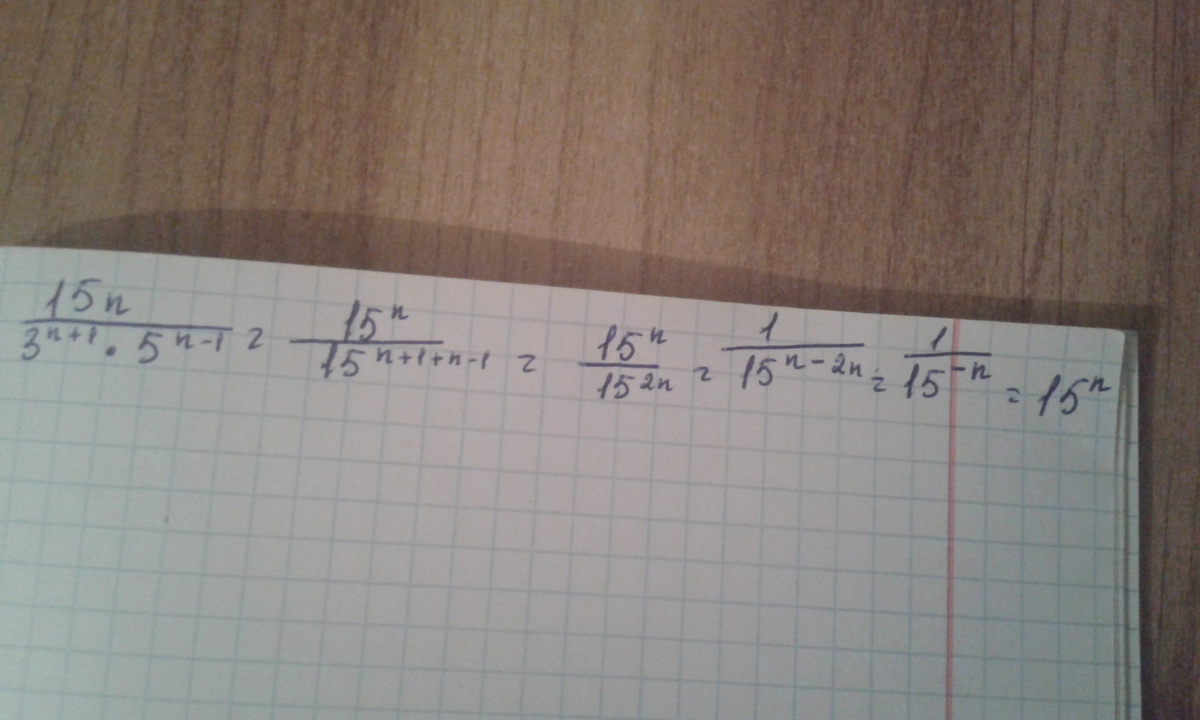 15n / 3^(n+1) · 5^(n-1) = 15^n / 15^(n+1+n-1) = 15^n / 15^(2n) = 1 / 15^(n-2n) = 1 / 15^(-n) = 15^n